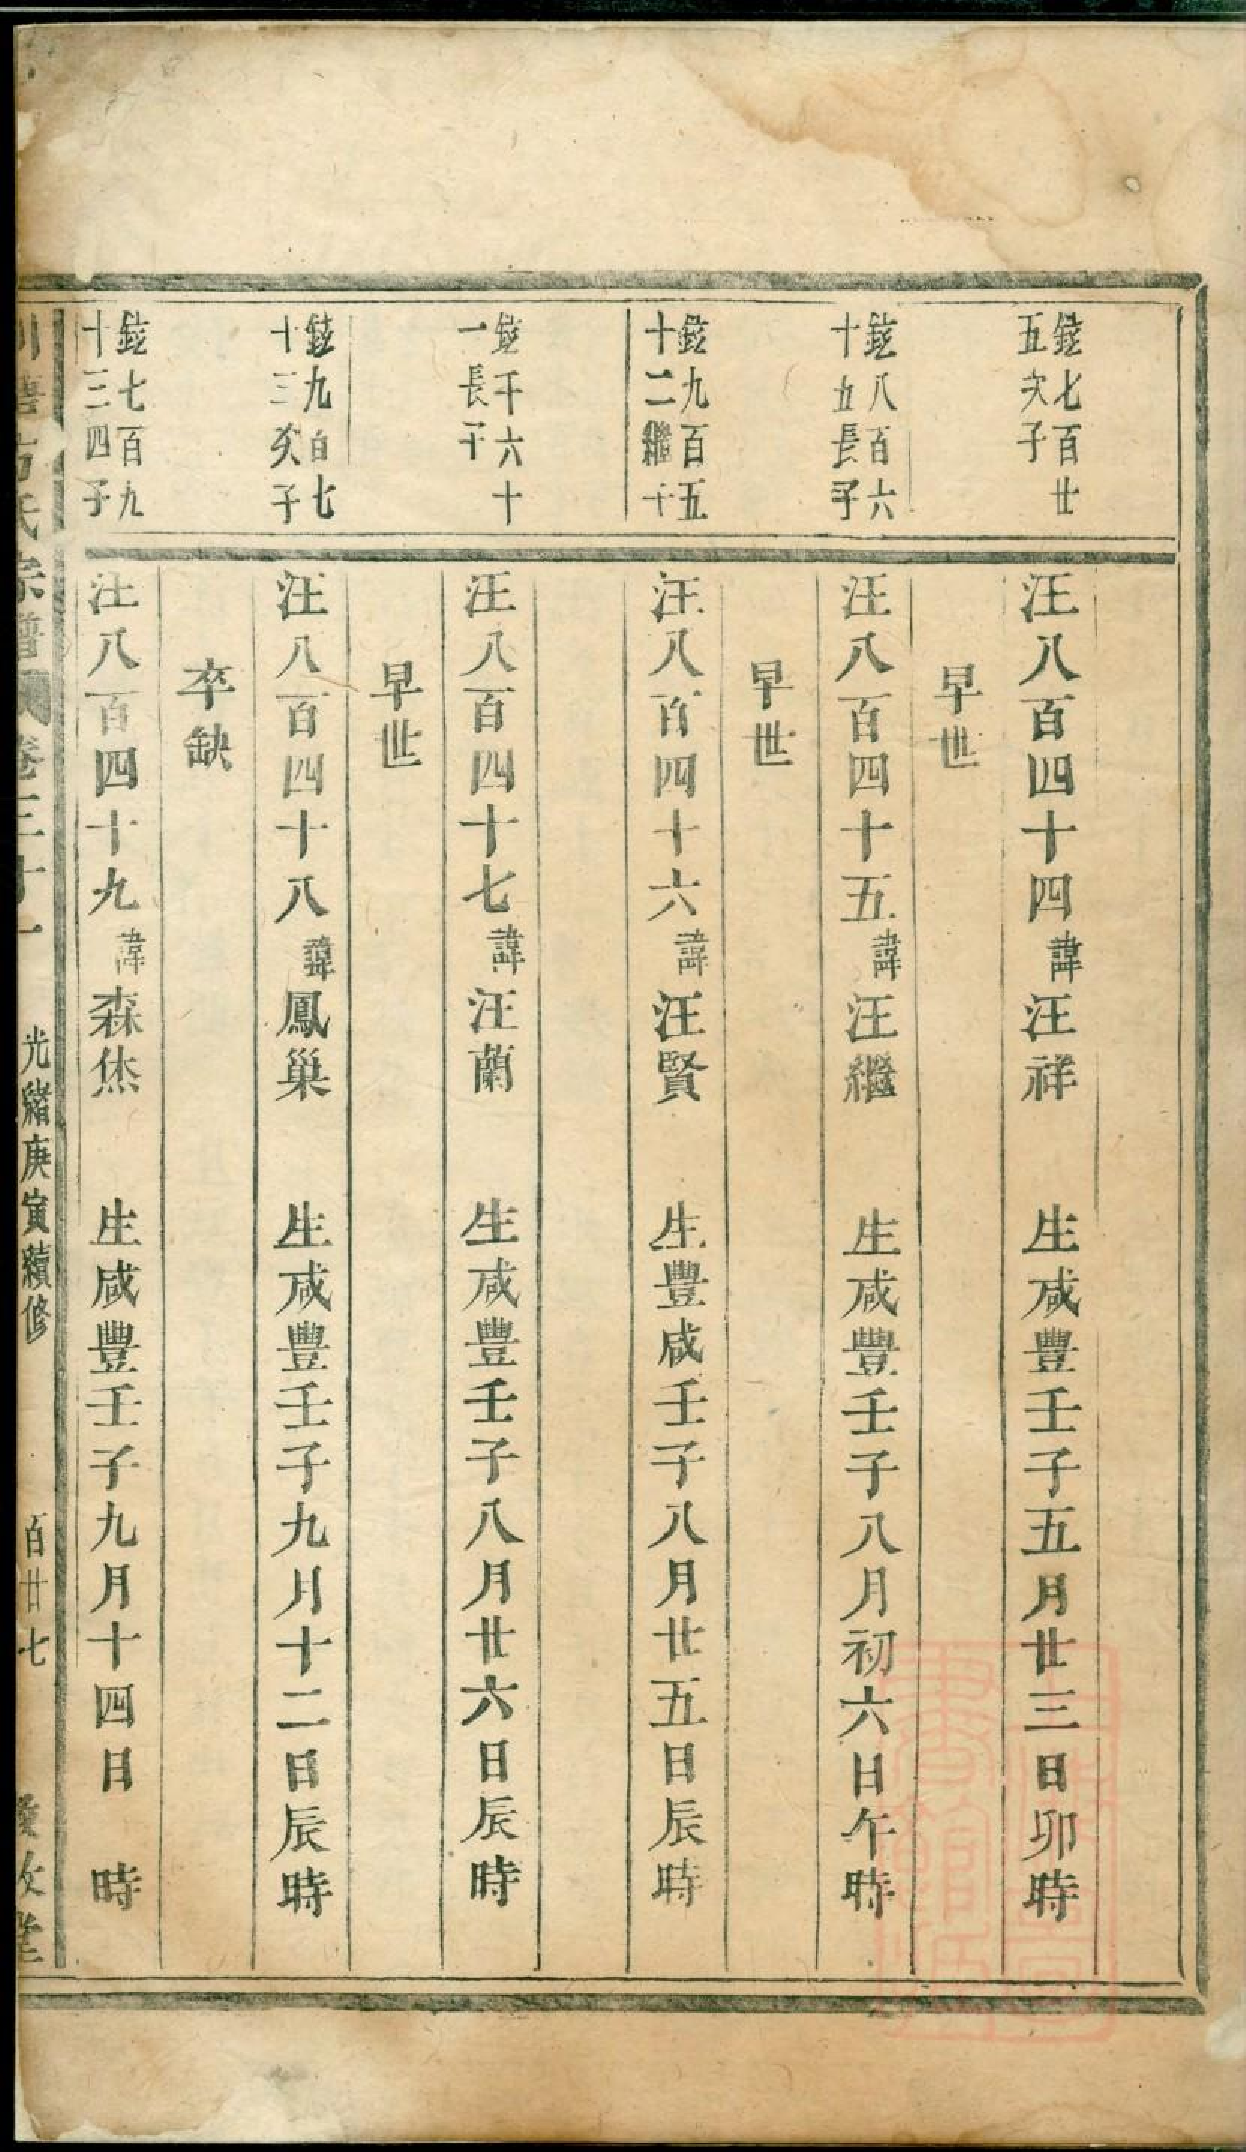 鉣七百廿
五次子
汪八百四十四諱汪祥 生咸豐壬子五月廿三日卯時
早世
鉣八百六
十五長子
汪八百四十五諱汪繼 生咸豐壬子八月初六日午時
早世
鉣九百五
十二繼子
汪八百四十六諱汪賢 生豐咸壬子八月廿五日辰時
鉣千六十
一長子
汪八百四十七諱汪蘭 生咸豐壬子八月廿六日辰時
早世
鉣九百七
十三次子
汪八百四十八諱鳳巢 生咸豐壬子九月十二日辰時
卒缺
鉣七百九
十三四子
汪八百四十九諱森烋 生咸豐壬子九月十四日 時
方氏宗譜 卷三十一 光緒庚寅續修 百廿七 堂